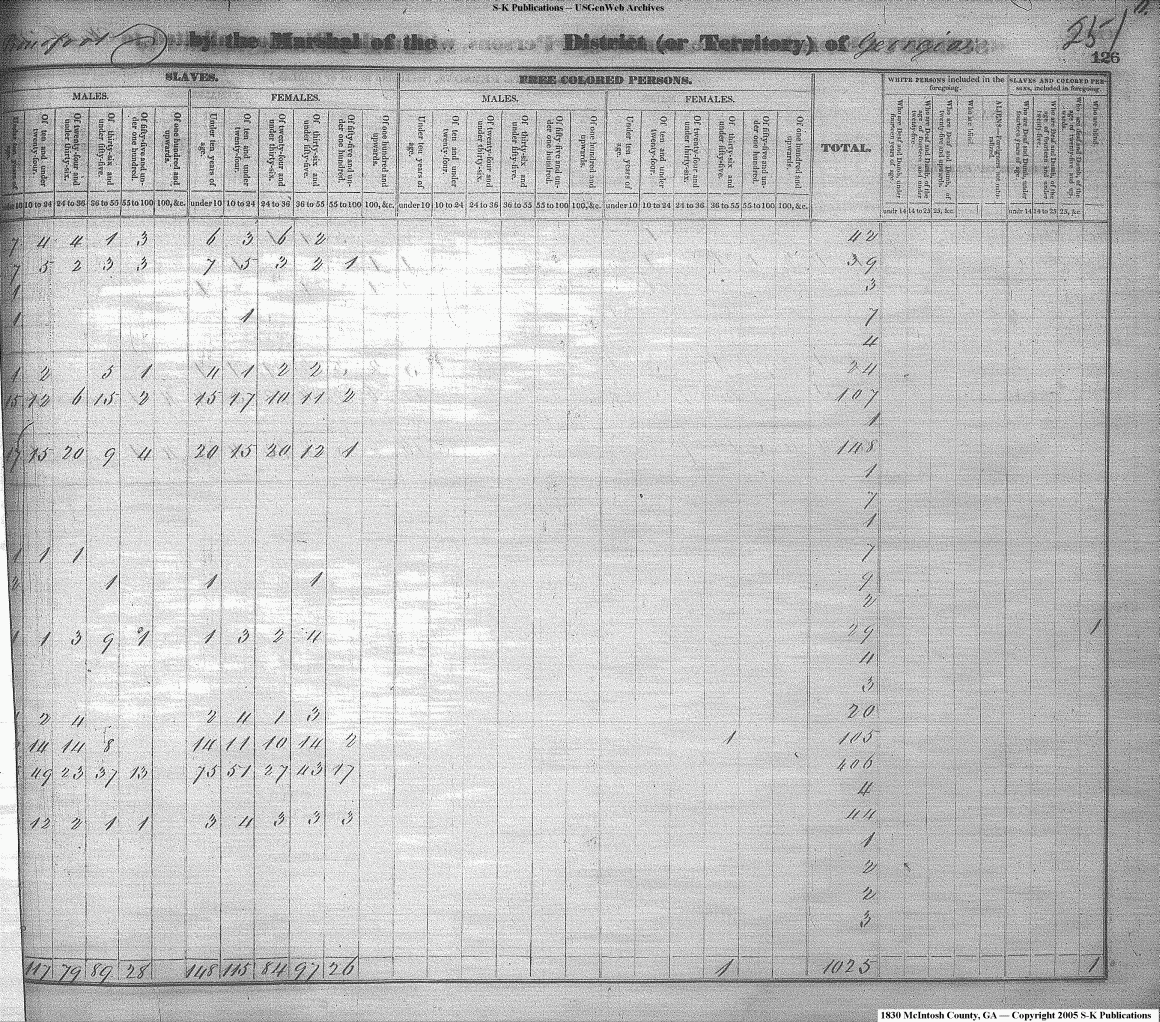 S-K Publications – USGenWeb Archives
by the Marshal of the District (or Territory) of Georgia
251
126
SLAVES. FREE COLORED PERSONS. TOTAL. WHITE PERSONS included in the foregoing. SLAVES AND COLORED PERSONS, included in foregoing.
MALES. FEMALES. MALES. FEMALES.
Of ten and under twenty-four. Of twenty-four and under thirty-six. Of thirty-six and under fifty-five. Of fifty-five and under one hundred. Of one hundred and upwards. Under ten years of age. Of ten and under twenty-four. Of twenty-four and under thirty-six. Of thirty-six and under fifty-five. Of fifty-five and under one hundred. Of one hundred and upwards. Under ten years of age. Of ten and under twenty-four. Of twenty-four and under thirty-six. Of thirty-six and under fifty-five. Of fifty-five and under one hundred. Of one hundred and upwards. Under ten years of age. Of ten and under twenty-four. Of twenty-four and under thirty-six. Of thirty-six and under fifty-five. Of fifty-five and under one hundred. Of one hundred and upwards.
10 to 24 24 to 36 36 to 55 55 to 100 100, &c. under 10 10 to 24 24 to 36 36 to 55 55 to 100 100, &c. under 10 10 to 24 24 to 36 36 to 55 55 to 100 100, &c. under 10 10 to 24 24 to 36 36 to 55 55 to 100 100, &c. undr 14 14 to 25 25, &c. undr 14 14 to 25 25, &c.
7 4 4 1 3 6 3 6 2 42
7 5 2 3 3 7 5 3 2 1 39
1 3
1 1 7
4
1 2 5 1 4 1 2 2 24
15 12 6 15 2 15 17 10 11 2 107
1
17 15 20 9 4 20 15 20 12 1 148
1
7
1
1 1 1 7
2 1 1 1 9
2
1 1 3 9 1 1 3 2 4 29 1
4
3
2 4 2 4 1 3 20
14 14 8 14 11 10 14 2 1 105
49 23 37 13 75 51 27 43 17 406
4
12 2 1 1 3 4 3 3 3 44
1
2
2
3
117 79 89 28 148 115 84 97 26 1 1025 1
1830 McIntosh County, GA — Copyright 2005 S-K Publications